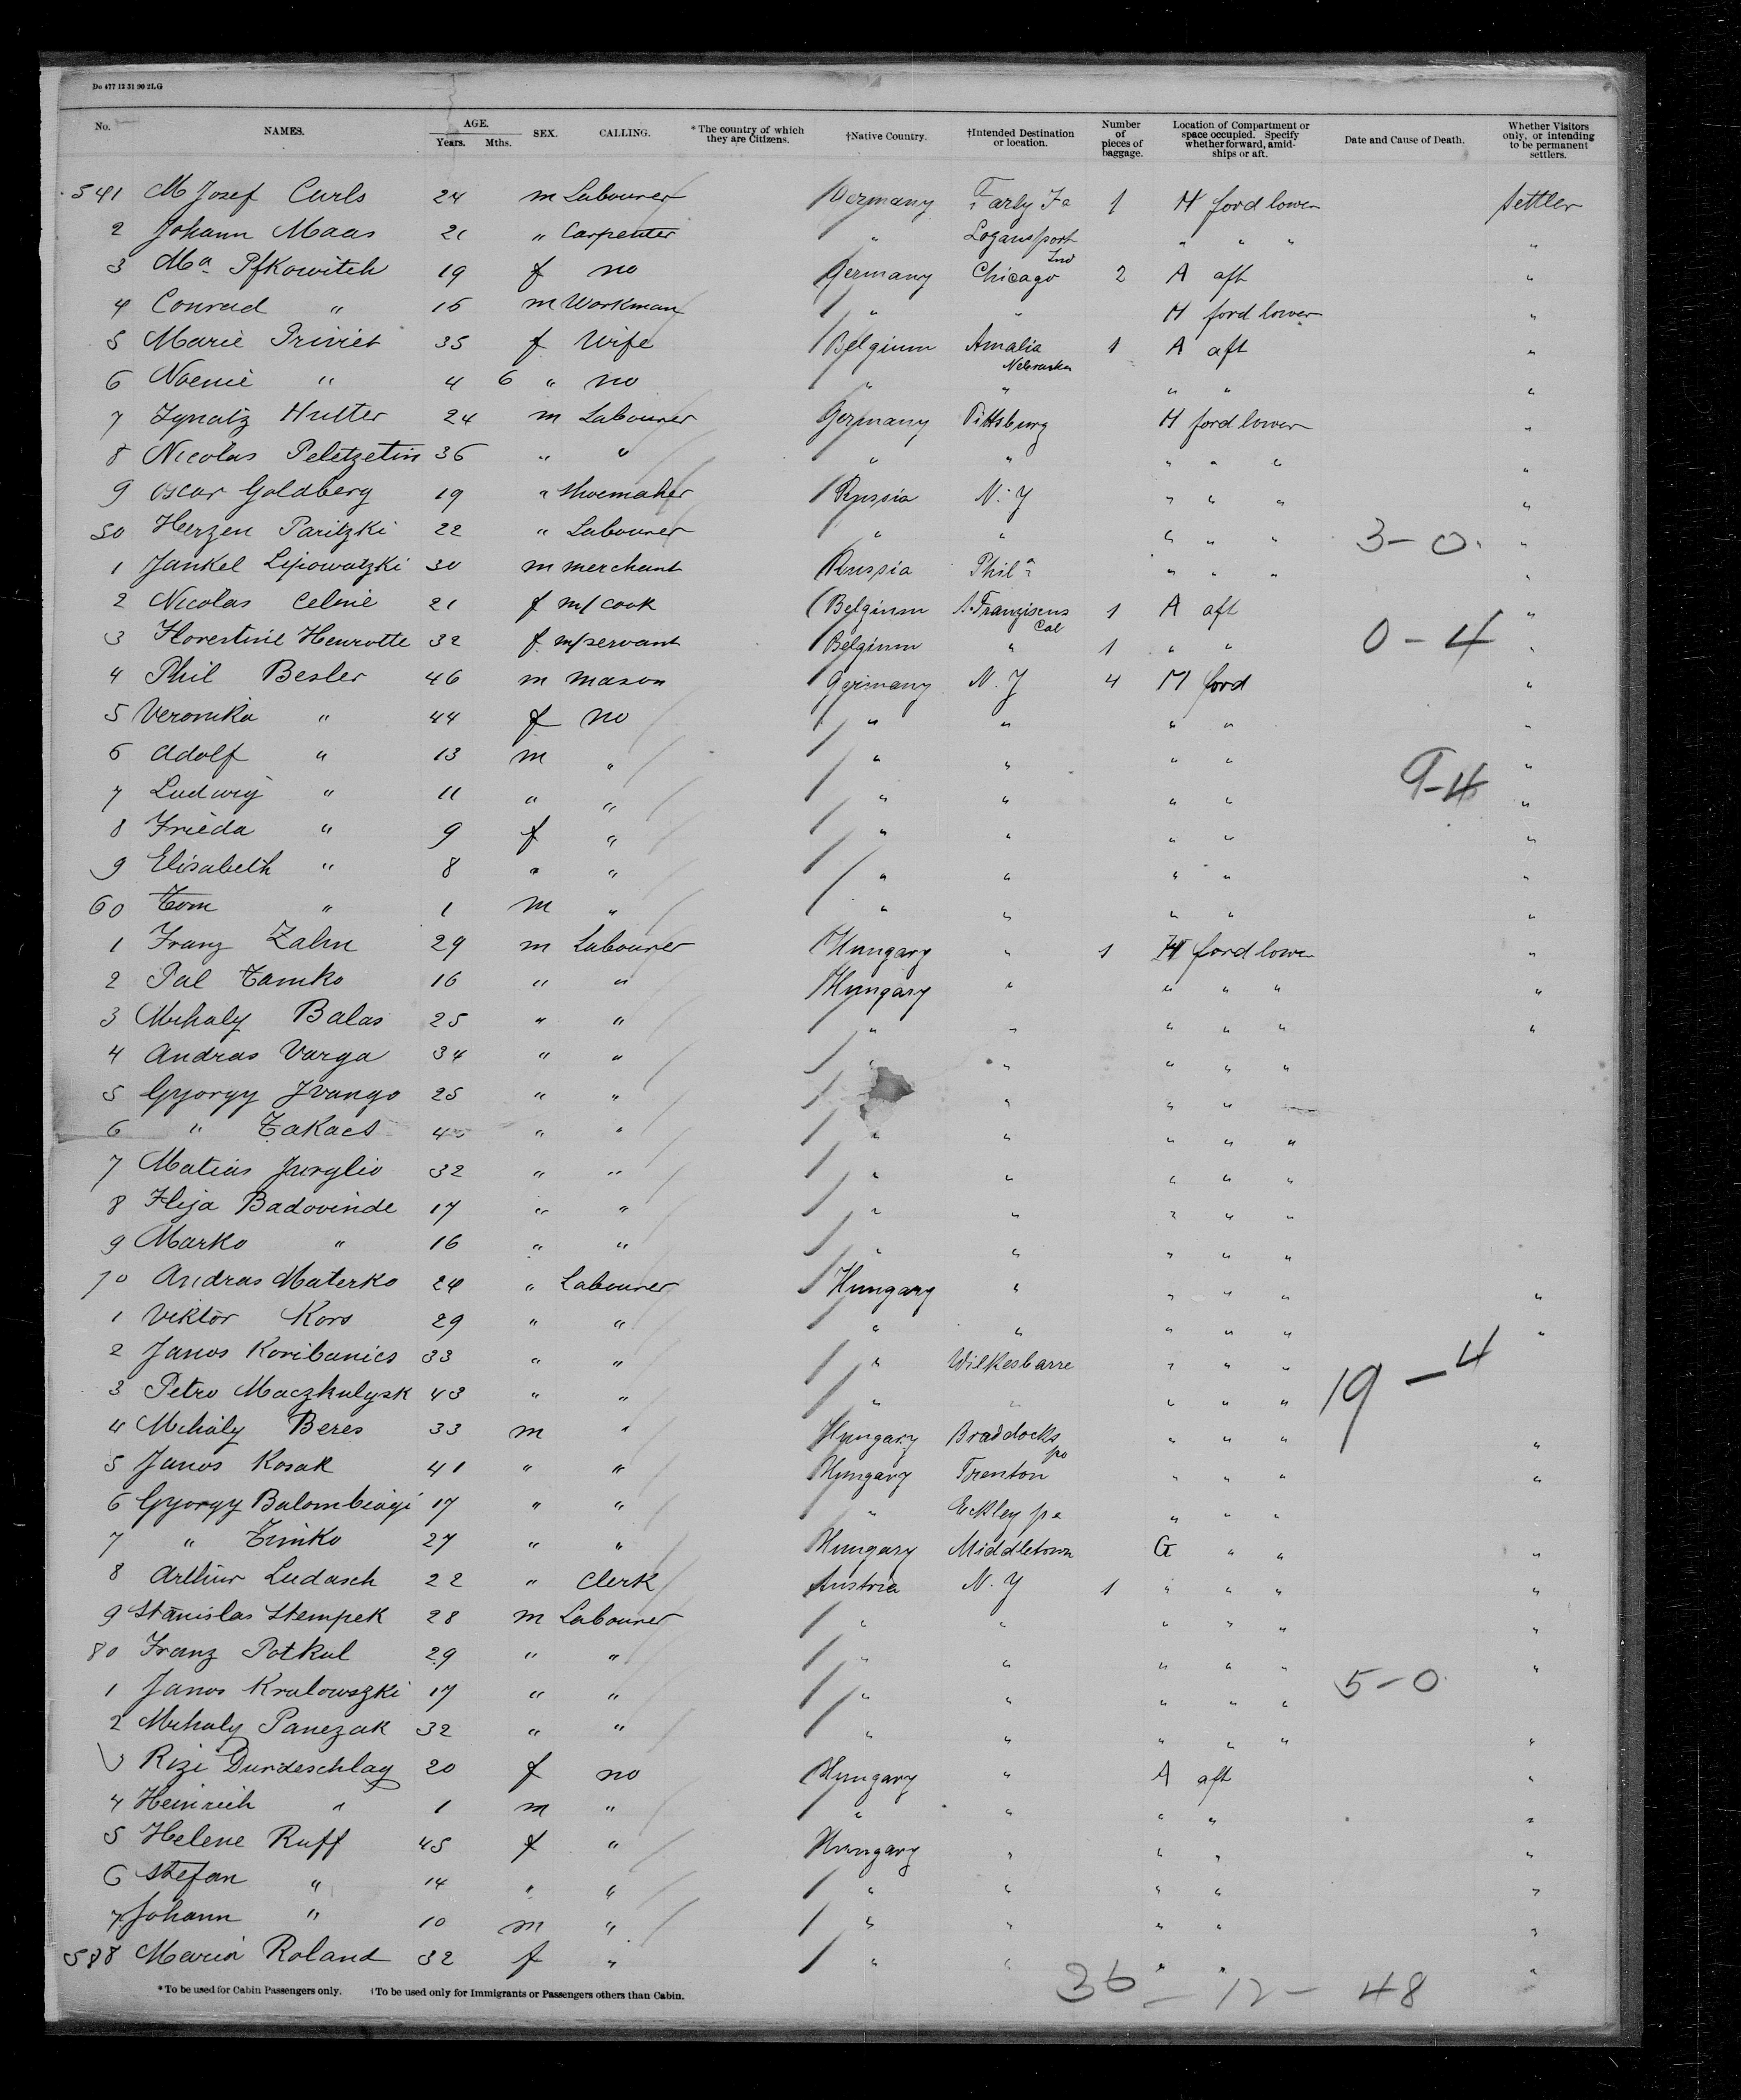 Do 477 12 31 90 2LG
No. NAMES. AGE. Years. Mths. SEX. CALLING. *The country of which they are Citizens. †Native Country. †Intended Destination or location. Number of pieces of baggage. Location of Compartment or space occupied. Specify whether forward, amidships or aft. Date and Cause of Death. Whether Visitors only, or intending to be permanent settlers.
541 M Josef Curls 24 m Labourer Germany Farly Ia 1 H ford lower Settler
2 Johann Maas 21 " Carpenter " Logansport Ind " " " "
3 Ma Pfkowitch 19 f no Germany Chicago 2 A aft "
4 Conrad " 15 m Workman " " H ford lower "
5 Marie Priviet 35 f Wife Belgium Amalia Nebraska 1 A aft "
6 Noemie " 4 6 " no " " " " "
7 Ignatz Hutter 24 m Labourer Germany Pittsburg H ford lower "
8 Nicolas Peletzetin 36 " " " " " " " "
9 Oscar Goldberg 19 " Shoemaker Russia N.Y " " " "
50 Herzen Paritzki 22 " Labourer " " " " " 3-0 "
1 Jankel Lipowatzki 30 m merchant Russia Phila " " " "
2 Nicolas Celine 21 f m/cook Belgium S. Franziscus Cal 1 A aft "
3 Florestine Henrotte 32 f m/servant Belgium " 1 " " 0-4 "
4 Phil Besler 46 m mason Germany N.Y 4 M ford "
5 Veronika " 44 f no " " " " "
6 Adolf " 13 m " " " " " "
7 Ludwig " 11 " " " " " " 9-4 "
8 Frieda " 9 f " " " " " "
9 Elisabeth " 8 " " " " " " "
60 Tom " 1 m " " " " " "
1 Franz Zahn 29 m Labourer Hungary " 1 H ford lower "
2 Pal Tamko 16 " " Hungary " " " " "
3 Mihaly Balas 25 " " " " " " " "
4 Andras Varga 34 " " " " " " "
5 Gyorgy Ivango 25 " " " " "
6 " Takacs 40 " " " " " " "
7 Matias Jurglio 32 " " " " " " "
8 Ilija Badovinde 17 " " " " " " "
9 Marko " 16 " " " " " " "
70 Andras Materko 24 " Labourer Hungary " " " " "
1 Viktor Kors 29 " " " " " " " "
2 Janos Koribanics 33 " " " Wilkesbarre " " "
3 Petro Maczkulyak 43 " " " " " " " 19-4
4 Mihaly Beres 33 m " Hungary Braddocks pa " " " "
5 Janos Kosak 41 " " Hungary Trenton " " " "
6 Gyorgy Balombiagi 17 " " " Eckley pa " " "
7 " Timko 27 " " Hungary Middletown G " " "
8 Arthur Ludasch 22 " Clerk Austria N.Y 1 " " " "
9 Stanislas Stempek 28 m Labourer " " " " " "
80 Franz Potkul 29 " " " " " " " "
1 Janos Kralowszki 17 " " " " " " " 5-0
2 Mihaly Panezak 32 " " " " " " " "
3 Rizi Durdeschlag 20 f no Hungary " A aft "
4 Heinrich " 1 m " " " " " "
5 Helene Ruff 45 f " Hungary " " " "
6 Stefan " 14 " " " " " " "
7 Johann " 10 m " " " " " "
588 Maria Roland 32 f " " " " " "
36 - 12 - 48
*To be used for Cabin Passengers only. †To be used only for Immigrants or Passengers others than Cabin.